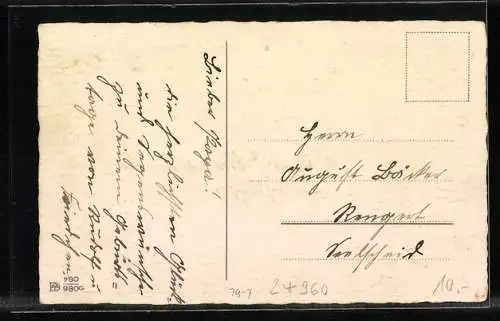 Lieber Papa!
die herzlichsten Glück-
und Segenswünsche
zu deinem Geburts=
tage von Rudolf u
Friedchen
Herrn
August Böcker
Rengert
Seelscheid
980
980G
79-7
24960
10.-